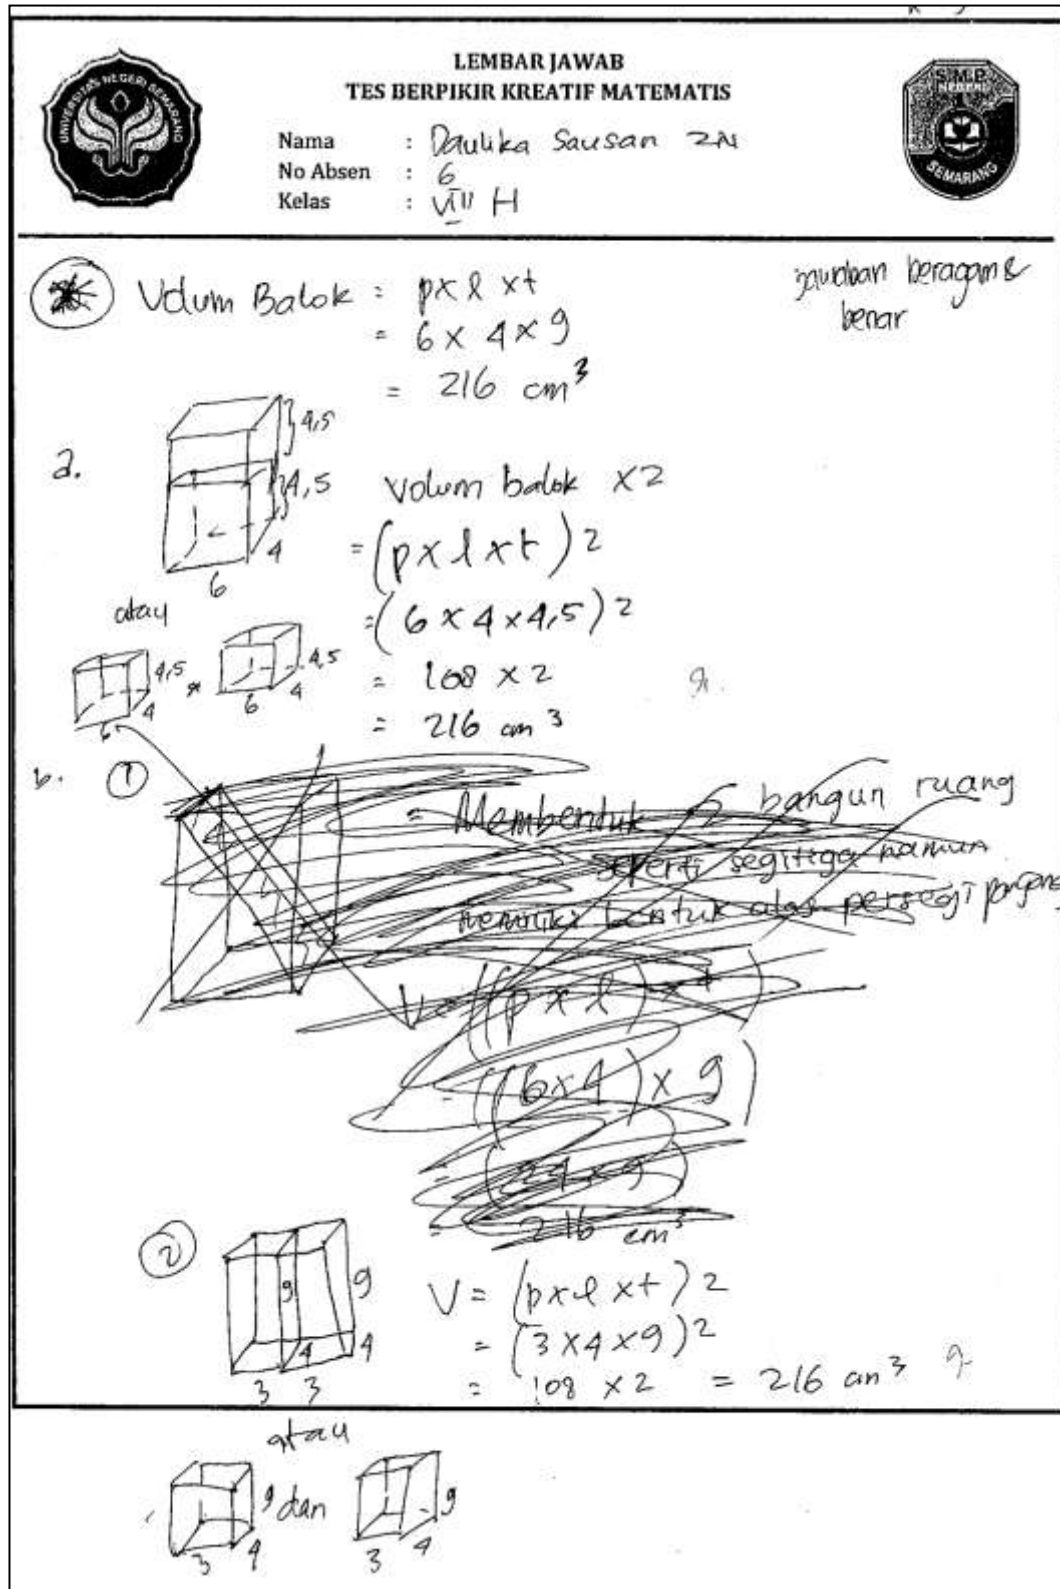 UNIVERSITAS NEGERI SEMARANG
LEMBAR JAWAB
TES BERPIKIR KREATIF MATEMATIS
S.M.P.
NEGERI
SEMARANG
Nama : Daulika Sausan ZN
No Absen : 6
Kelas : VIII H
Jawaban beragam &
benar
Volum Balok = p x l x t
= 6 x 4 x 9
= 216 cm³
a.
4,5
4,5
4
6
Volum balok x2
= (p x l x t) 2
= (6 x 4 x 4,5) 2
= 108 x 2
= 216 cm³
atau
4,5
6 4
4,5
6 4
b. ①
= Membentuk 2 bangun ruang
seperti segitiga namun
memiliki bentuk alas persegi panjang
V = ((p x l) x t)
= ((6x4) x 9)
= (24 x 9)
= 216 cm³
②
9 9
4 4
3 3
V = (p x l x t) 2
= (3 x 4 x 9) 2
= 108 x 2 = 216 cm³
atau
9 dan 9
3 4 3 4